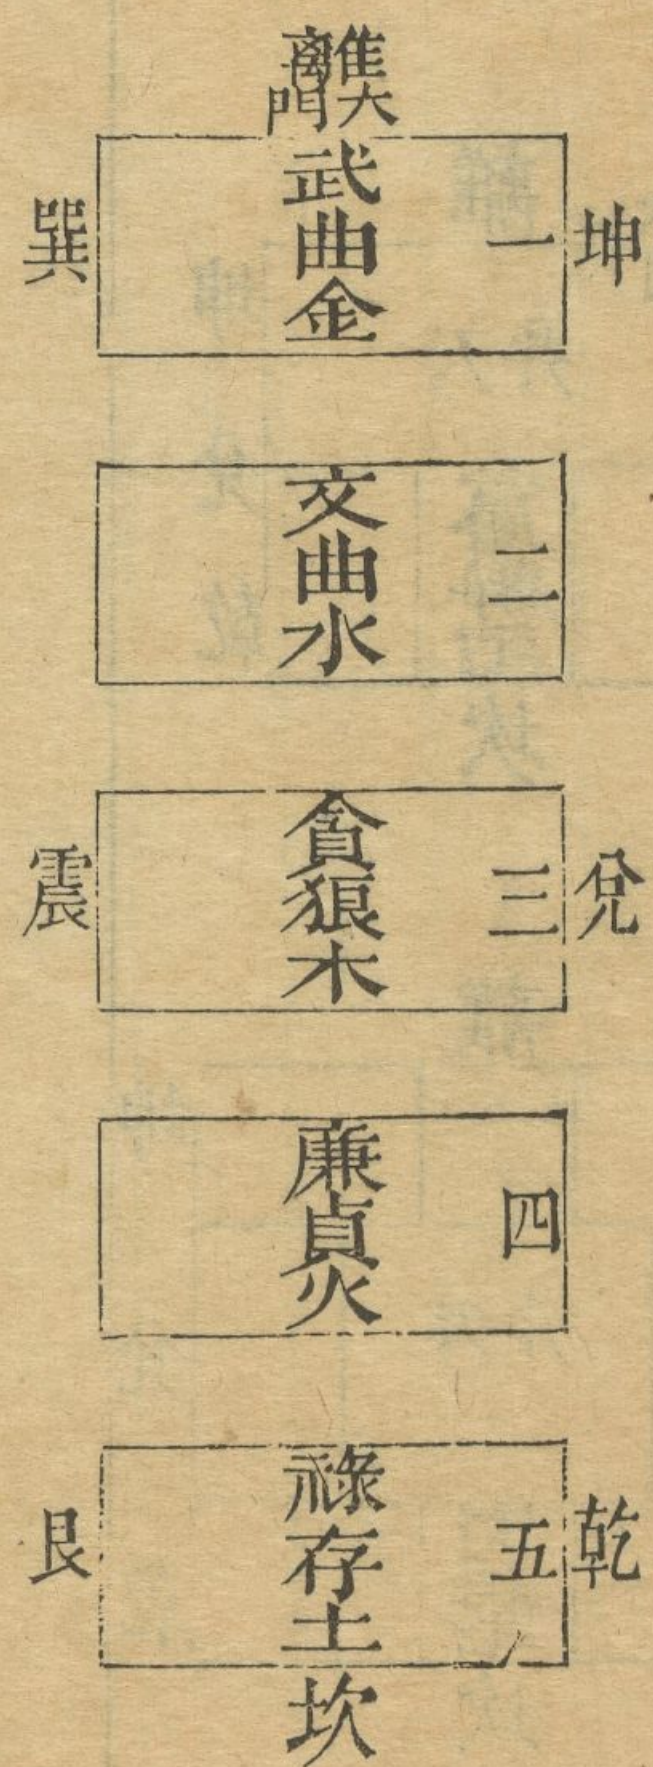 離
大門
坤
一
武曲金
巽
二
文曲水
兌
三
貪狼木
震
四
廉貞火
乾
五
祿存土
艮
坎